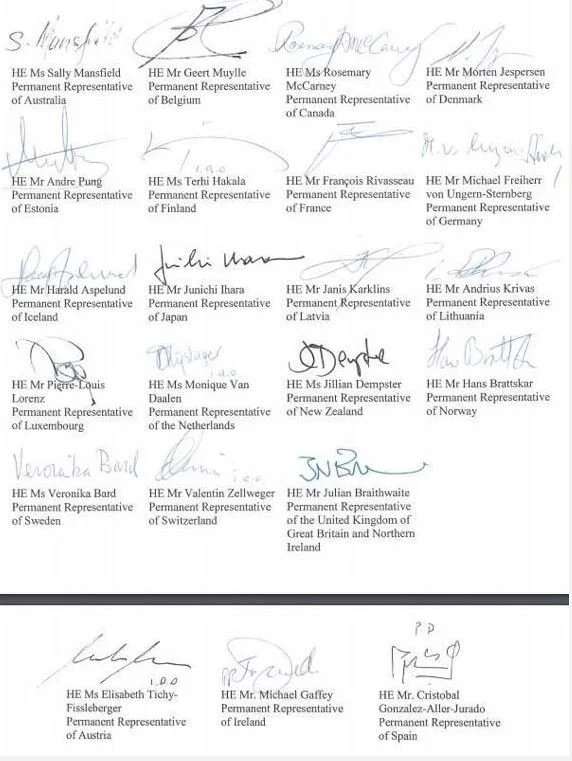 S. Mansfield
HE Ms Sally Mansfield
Permanent Representative
of Australia
HE Mr Geert Muylle
Permanent Representative
of Belgium
HE Ms Rosemary
McCarney
Permanent Representative
of Canada
HE Mr Morten Jespersen
Permanent Representative
of Denmark
HE Mr Andre Pung
Permanent Representative
of Estonia
HE Ms Terhi Hakala
Permanent Representative
of Finland
HE Mr François Rivasseau
Permanent Representative
of France
HE Mr Michael Freiherr
von Ungern-Sternberg
Permanent Representative
of Germany
HE Mr Harald Aspelund
Permanent Representative
of Iceland
Junichi Ihara
HE Mr Junichi Ihara
Permanent Representative
of Japan
HE Mr Janis Karklins
Permanent Representative
of Latvia
HE Mr Andrius Krivas
Permanent Representative
of Lithuania
HE Mr Pierre-Louis
Lorenz
Permanent Representative
of Luxembourg
HE Ms Monique Van
Daalen
Permanent Representative
of the Netherlands
JDempster
HE Ms Jillian Dempster
Permanent Representative
of New Zealand
Hans Brattskar
HE Mr Hans Brattskar
Permanent Representative
of Norway
Veronika Bard
HE Ms Veronika Bard
Permanent Representative
of Sweden
HE Mr Valentin Zellweger
Permanent Representative
of Switzerland
HE Mr Julian Braithwaite
Permanent Representative
of the United Kingdom of
Great Britain and Northern
Ireland
HE Ms Elisabeth Tichy-
Fissleberger
Permanent Representative
of Austria
HE Mr. Michael Gaffey
Permanent Representative
of Ireland
PD
HE Mr. Cristobal
Gonzalez-Aller-Jurado
Permanent Representative
of Spain